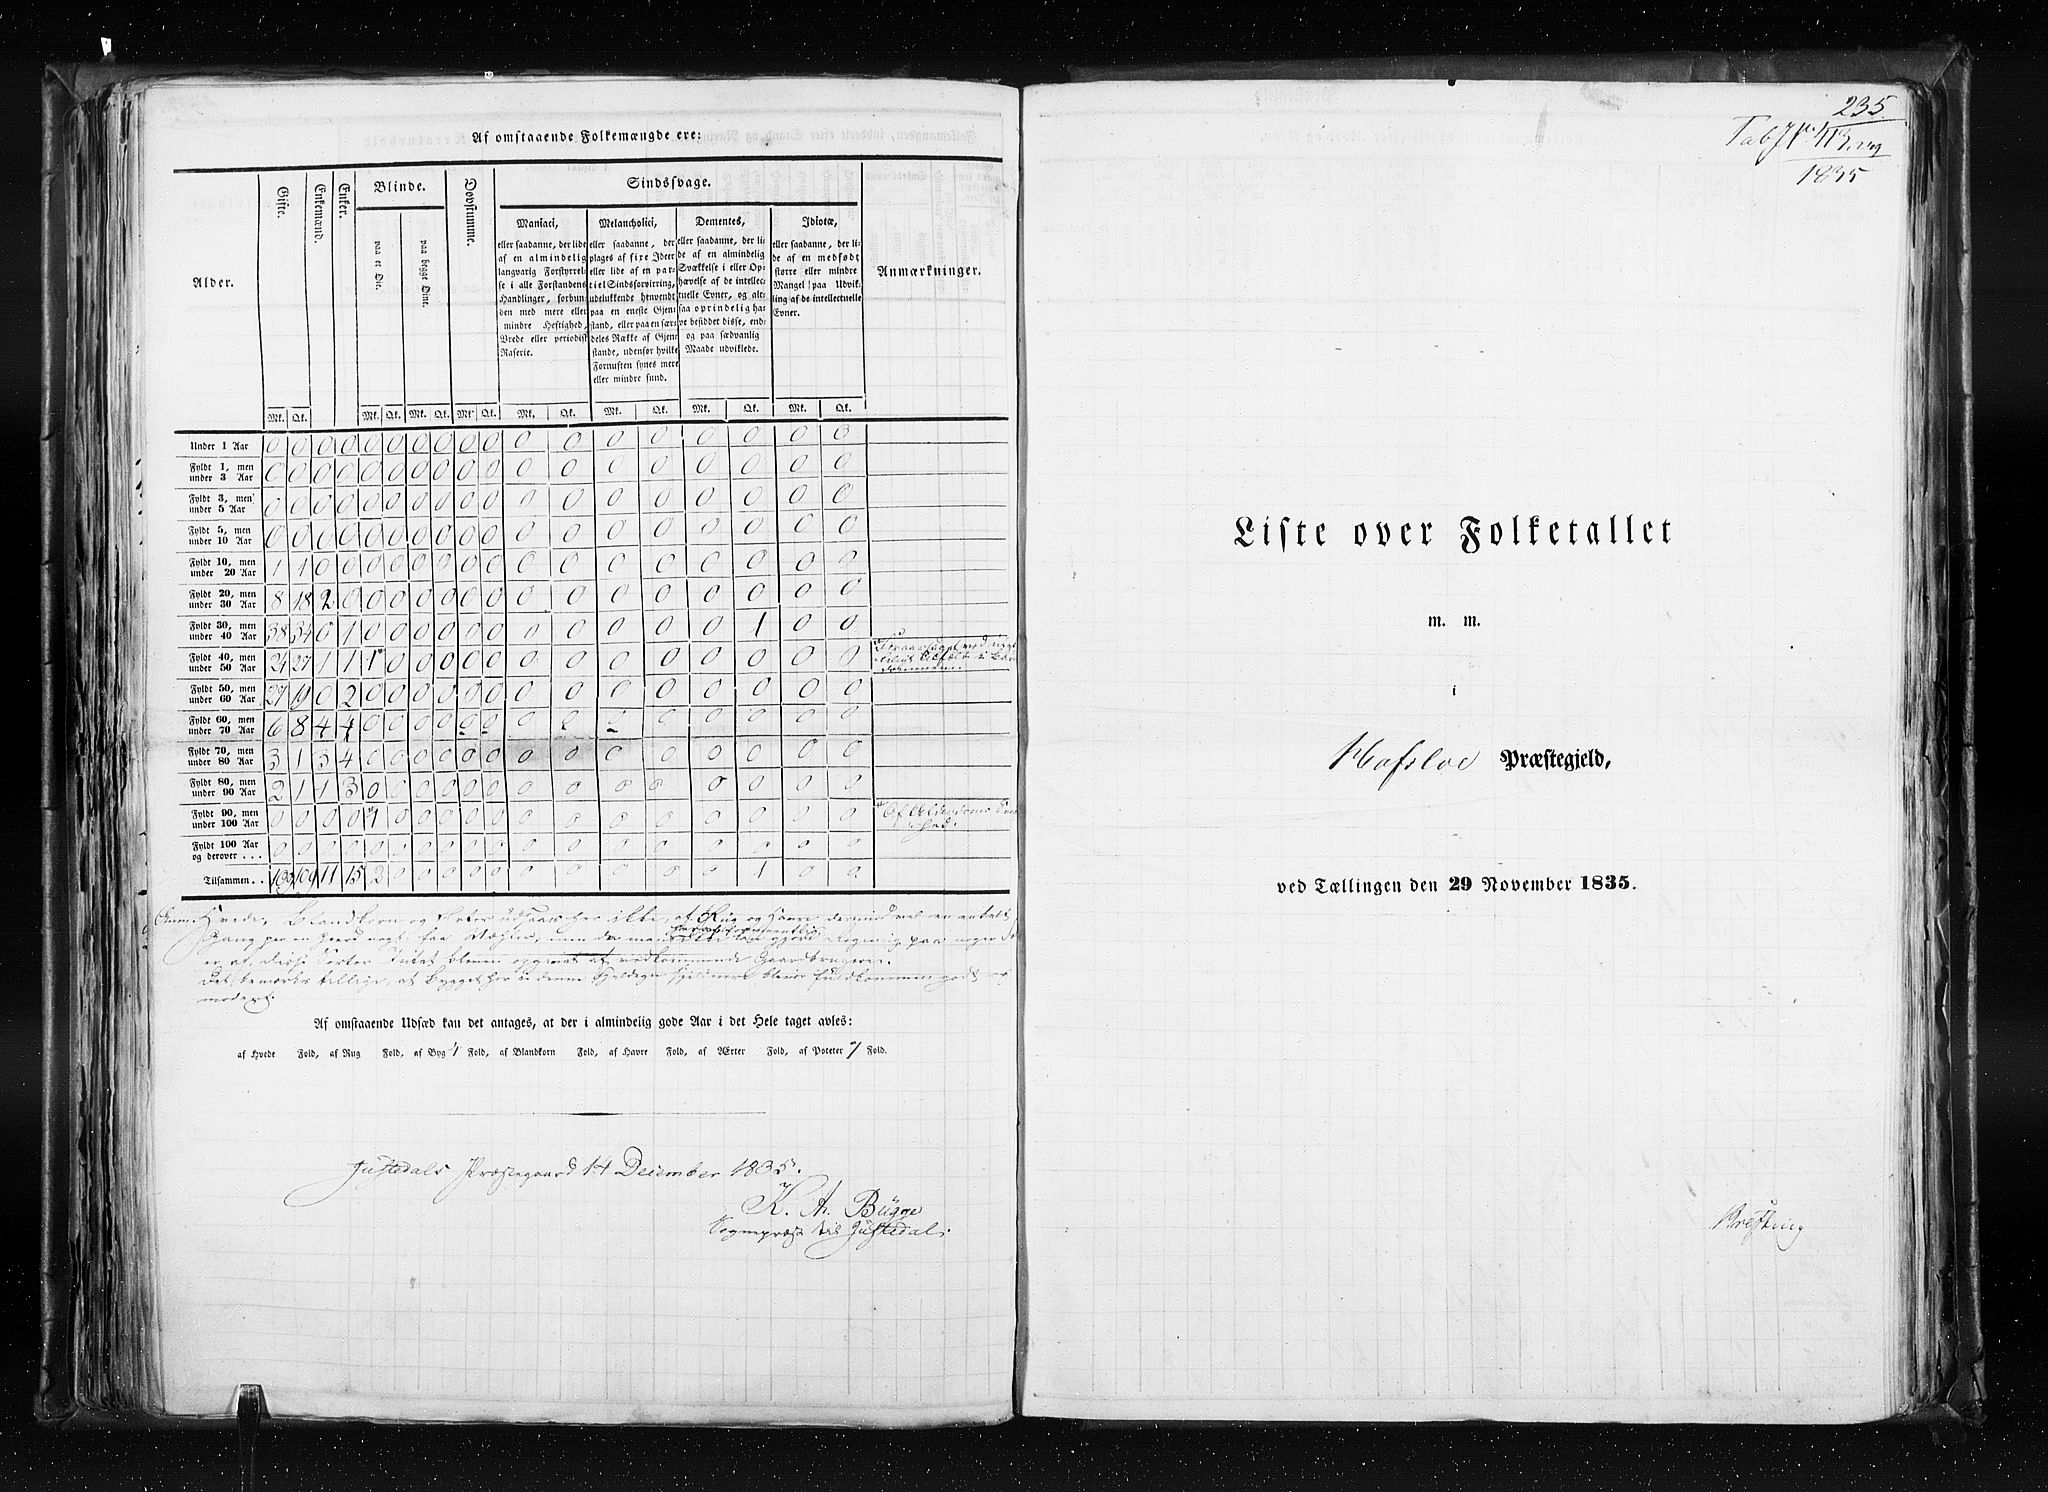 Af omstaaende Folkemængde ere:
Alder. Gifte. Enkemænd. Enker. Blinde. Døvstumme. Sindssvage. Anmærkninger.
paa et Øie. paa begge Øine.
Maniaci,
eller saadanne, der lide
af en almindelig
langvarig Forstyrrel-
se i alle Forstandens
Handlinger, forbun-
den med mere eller
mindre Heftighed,
Vrede eller periodisk
Raserie.
Melancholici,
eller saadanne, der
plages af fixe Ideer
eller lide af en par-
tiel Sindsforvirring,
udelukkende henvendt
paa en eneste Gjen-
stand, eller paa en sær-
deles Række af Gjen-
stande, udenfor hvilke
Fornuften synes mere
eller mindre sund.
Dementes,
eller saadanne, der li-
de af en almindelig
Svækkelse i eller Op-
hævelse af de intellec-
tuelle Evner, og alt-
saa oprindelig ha-
ve besiddet disse, end-
og paa sædvanlig
Maade udviklede.
Idiotæ,
eller saadanne, der li-
de af en medfødt
større eller mindre
Mangel paa Udvik-
ling af de intellectuelle
Evner.
Mk. Qk. Mk. Qk. Mk. Qk. Mk. Qk. Mk. Qk. Mk. Qk. Mk. Qk. Mk. Qk.
Under 1 Aar 0 0 0 0 0 0 0 0 0 0 0 0 0 0 0 0 0 0
Fyldt 1, men under 3 Aar 0 0 0 0 0 0 0 0 0 0 0 0 0 0 0 0 0 0
Fyldt 3, men under 5 Aar 0 0 0 0 0 0 0 0 0 0 0 0 0 0 0 0 0 0
Fyldt 5, men under 10 Aar 0 0 0 0 0 0 0 0 0 0 0 0 0 0 0 0 0 0
Fyldt 10, men under 20 Aar 1 1 0 0 0 0 0 0 0 0 0 0 0 0 0 0 0 0
Fyldt 20, men under 30 Aar 8 18 2 0 0 0 0 0 0 0 0 0 0 0 0 0 0 0
Fyldt 30, men under 40 Aar 38 34 0 1 0 0 0 0 0 0 0 0 0 0 0 1 0 0
Fyldt 40, men under 50 Aar 24 27 1 1 1 0 0 0 0 0 0 0 0 0 0 0 0 0
Fyldt 50, men under 60 Aar 27 19 0 2 0 0 0 0 0 0 0 0 0 0 0 0 0 0
Fyldt 60, men under 70 Aar 6 8 4 4 0 0 0 0 0 0 0 0 0 0 0 0 0 0
Fyldt 70, men under 80 Aar 3 1 3 4 0 0 0 0 0 0 0 0 0 0 0 0 0 0
Fyldt 80, men under 90 Aar 2 1 1 3 0 0 0 0 0 0 0 0 0 0 0 0 0 0
Fyldt 90, men under 100 Aar 0 0 0 0 1 0 0 0 0 0 0 0 0 0 0 0 0 0 Af Alderdoms
Fyldt 100 Aar og derover . . . 0 0 0 0 0 0 0 0 0 0 0 0 0 0 0 0 0 0
Tilsammen . . 109 109 11 15 2 0 0 0 0 0 0 0 0 0 0 1 0 0
Anm: Hvede, Blandkorn og Erter udsaaes her ikke, af Rug og Havre derimod vel en enkelt
Gang paa en Gaard noget faa
af disse Sorter Intet bleven opgivet af vedkommende Gaardbrugere.
Det bemærkes tillige, at Bygget her i denne Fjeldegn sjeldnere bliver fuldkommen godt og
modent.
Af omstaaende Udsæd kan det antages, at der i almindelig gode Aar i det Hele taget avles:
af Hvede Fold, af Rug Fold, af Byg 4 Fold, af Blandkorn Fold, af Havre Fold, af Ærter Fold, af Poteter 7 Fold.
Justedals Præstegaard 14 December 1835.
K. A. Bügge
Sognepræst til Justedal.
235.
1835
Liste over Folketallet
m. m.
i
Hafsloe Præstegjeld,
ved Tællingen den 29 November 1835.